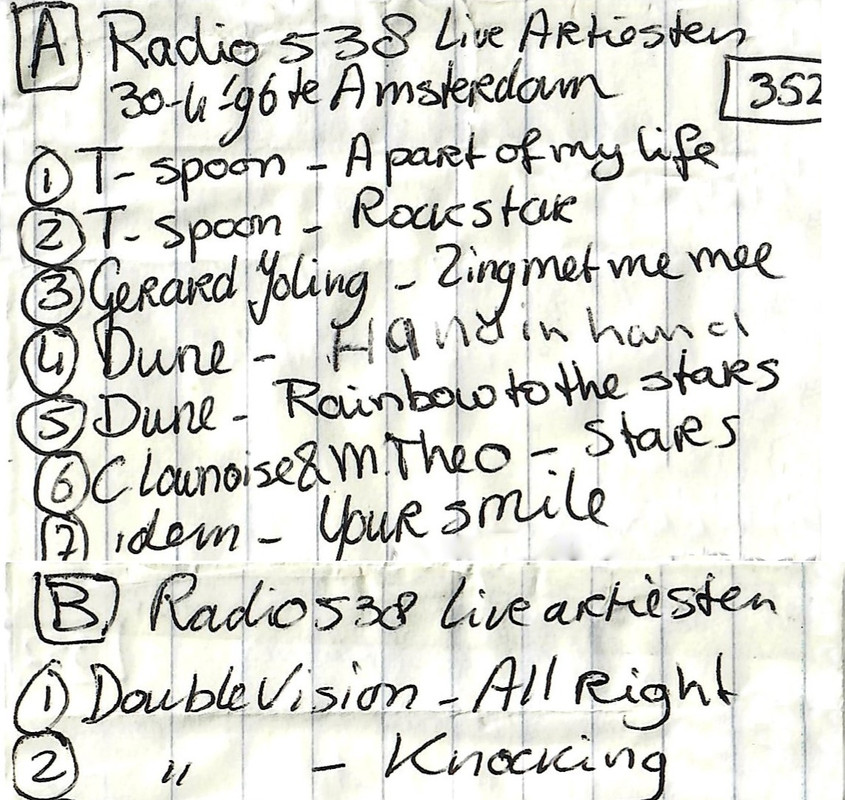 A Radio 538 Live Artiesten
30-4-'96 te Amsterdam
352
1 T-spoon - A part of my life
2 T-spoon - Rockstar
3 Gerard Joling - Zing met me mee
4 Dune - Hand in hand
5 Dune - Rainbow to the stars
6 Clownoise & M.Theo - Stars
7 idem - Your smile
B Radio 538 Live artiësten
1 Double Vision - All Right
2 " - Knocking